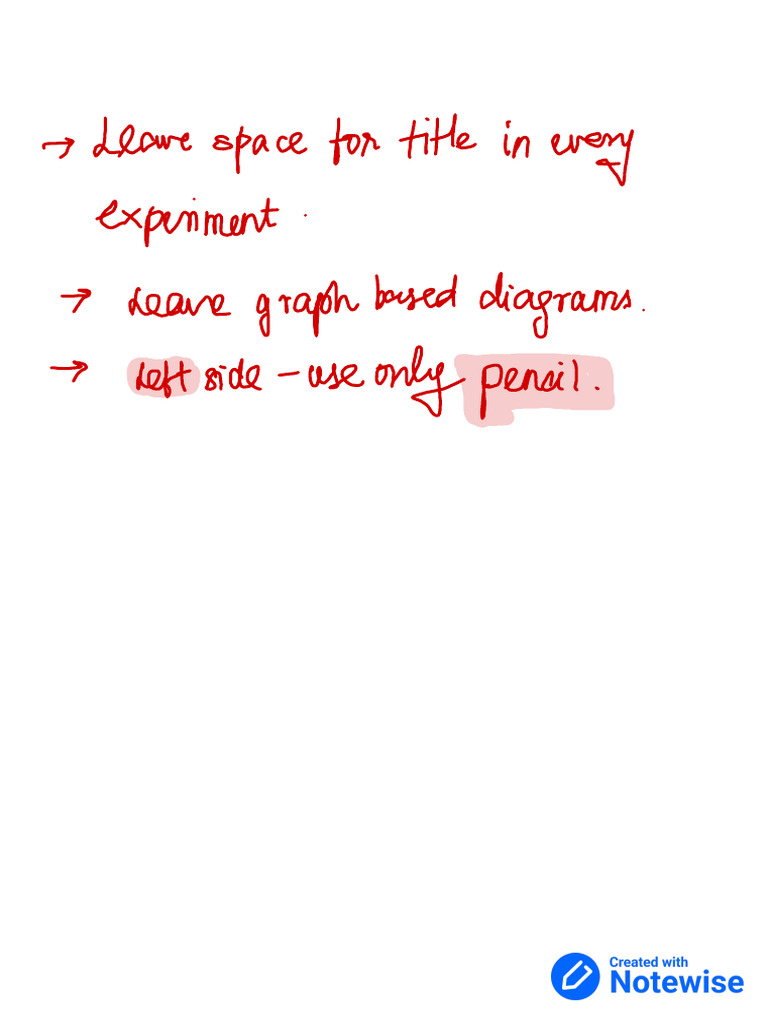 → Leave space for title in every
experiment.
→ Leave graph based diagrams.
→ Left side - use only pencil.
Created with
Notewise